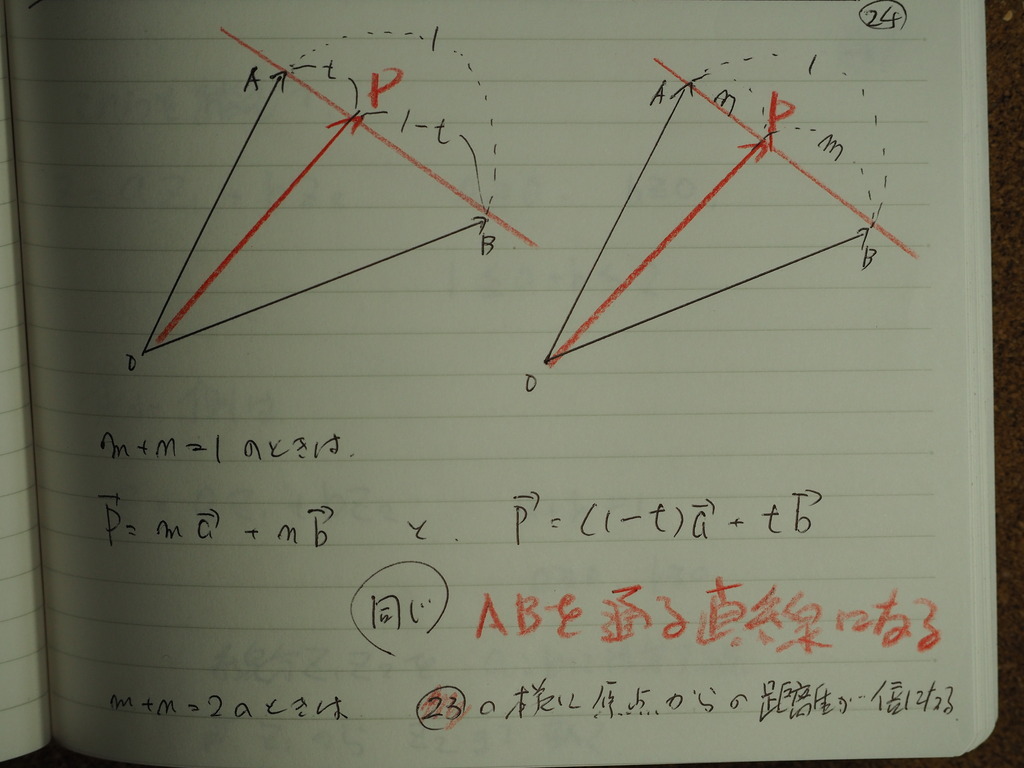 24
A t P 1 1-t B O
A n P 1 m B O
m+n=1のときは.
p⃗=ma⃗+nb⃗ と. p⃗=(1-t)a⃗+tb⃗
同じ ABを通る直線になる
m+n=2のときは 23の様に原点からの距離が倍になる